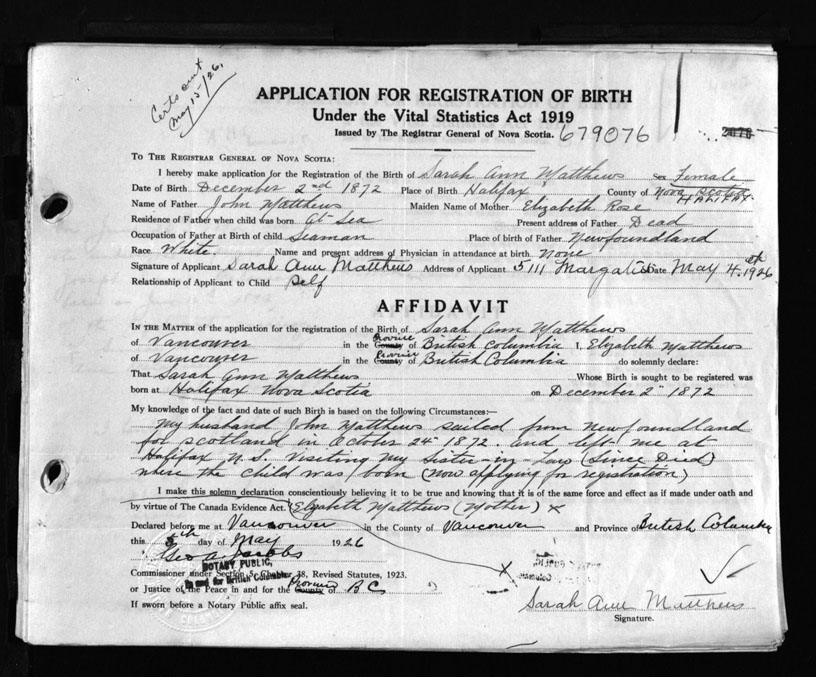 Certs sent
May 15/26.
APPLICATION FOR REGISTRATION OF BIRTH
Under the Vital Statistics Act 1919
Issued by The Registrar General of Nova Scotia.
679076
TO THE REGISTRAR GENERAL OF NOVA SCOTIA:
I hereby make application for the Registration of the Birth of Sarah Ann Matthews Sex Female
Date of Birth December 2nd 1872 Place of Birth Halifax County of Nova Scotia HALIFAX
Name of Father John Matthews Maiden Name of Mother Elizabeth Rose
Residence of Father when child was born at Sea Present address of Father Dead
Occupation of Father at Birth of child Seaman Place of birth of Father Newfoundland
Race White. Name and present address of Physician in attendance at birth none
Signature of Applicant Sarah Ann Matthews Address of Applicant 5111 Date May 4th 1926
Relationship of Applicant to Child Self
AFFIDAVIT
IN THE MATTER of the application for the registration of the Birth of Sarah Ann Matthews
of Vancouver in the County Province of British Columbia I, Elizabeth Matthews
of Vancouver in the County Province of British Columbia do solemnly declare:
That Sarah Ann Matthews Whose Birth is sought to be registered was
born at Halifax Nova Scotia on December 2" 1872
My knowledge of the fact and date of such Birth is based on the following Circumstances:—
My husband John Matthews sailed from Newfoundland
for Scotland in October 24" 1872. and left me at
Halifax N.S. Visiting my Sister-in-Law (Since Died)
where the child was born (now applying for registration)
I make this solemn declaration conscientiously believing it to be true and knowing that it is of the same force and effect as if made under oath and
by virtue of The Canada Evidence Act. Elizabeth Matthews (Mother) X
Declared before me at Vancouver in the County of Vancouver and Province of British Columbia
this 5th day of May 1926
Geo a. Jacobs
NOTARY PUBLIC,
In and for British Columbia
Commissioner under Section 5, Chapter 38, Revised Statutes, 1923. X
or Justice of the Peace in and for the County Province of B C
If sworn before a Notary Public affix seal.
Sarah Ann Matthews
Signature.